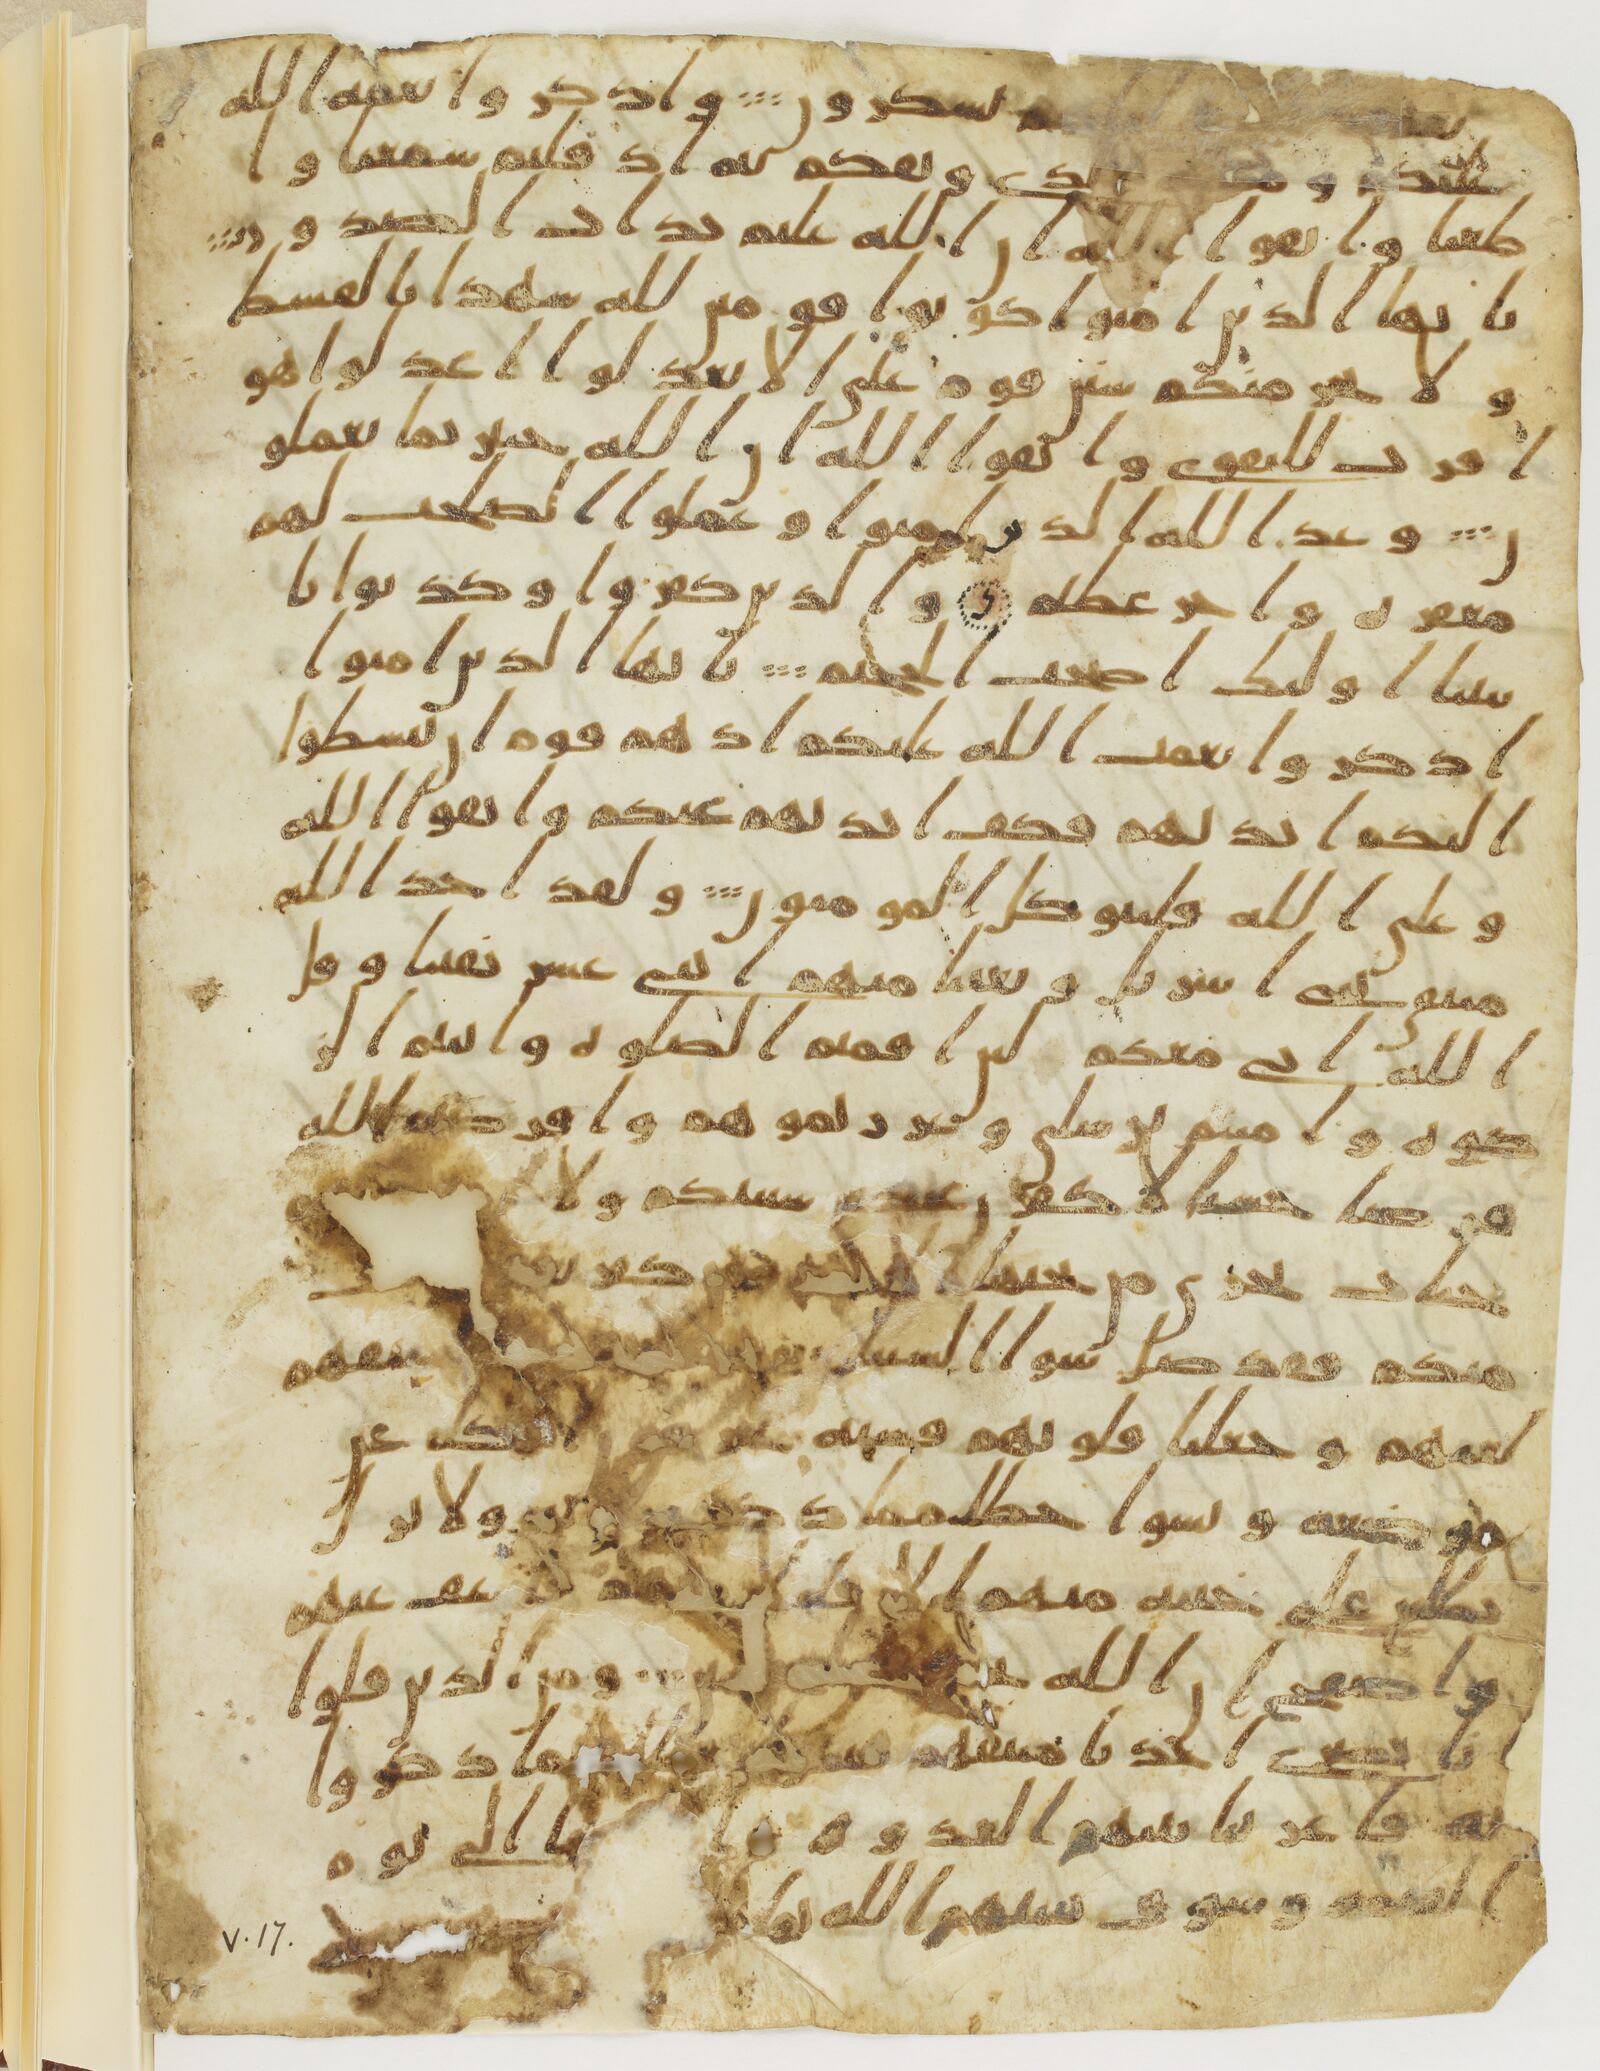 تشكرون واذكروا نعمه الله
عليكم الذي وثقكم به اذ قلتم سمعنا وا
طعنا واتقوا الله ان الله عليم بذات الصدور
يايها الذين امنوا كونوا قومين لله شهدا بالقسط
ولا يجرمنكم شنن قوم على الا تعدلوا اعدلوا هو
اقرب للتقوى واتقوا الله ان الله خبير بما تعملو
ن وعد الله الذين امنوا وعملوا الصلحت لهم
مغفره واجر عظيم والذين كفروا وكذبوا با
يتنا اوليك اصحب الجحيم يايها الذين امنوا
اذكروا نعمت الله عليكم اذ هم قوم ان يبسطوا
اليكم ايديهم فكف ايديهم عنكم واتقوا الله
وعلى الله فليتوكل المومنون ولقد اخذ الله
ميثق بني اسريل وبعثنا منهم اثني عشر نقيبا وقل
الله اني معكم لين اقمتم الصلوه واتيتم الز
كوه وامنتم برسلي وعزرتموهم واقرضتم الله
قرضا حسنا لاكفرن عنكم سيتكم ولا
جنت تجري من تحتها كفر
منكم فقد ضل سوا السبيل نقضهم
لعنهم وجعلنا قلوبهم قسيه الكلم عن
موضعه ونسوا حظا مما ولا تزل
تطلع على خينه منهم الا قليلا منهم فاعف عنهم
واصفح ان الله ومن الذين قلوا
انا نصرى اخذنا ميثقهم مما ذكروا
به فاغرينا بينهم العدوه الى يوم
القيمه وسوف ينبيهم الله بما
v.17.